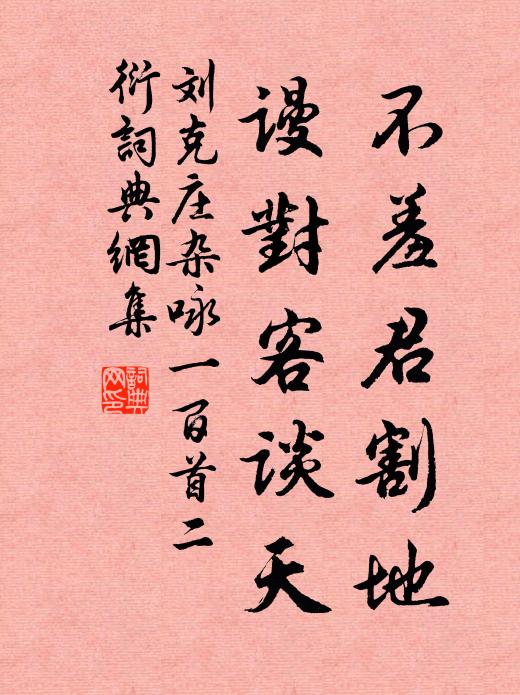 不羞君割地
谩對客談天
刘克庄杂咏一百首二
衍詞典網集
詞典网印